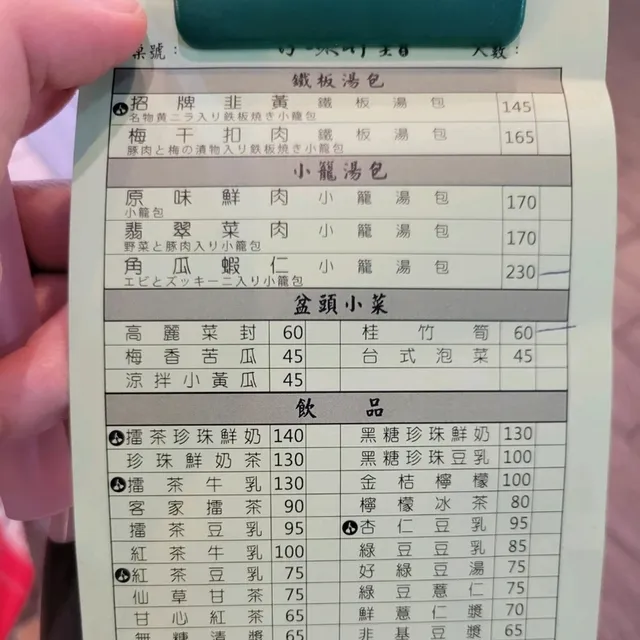 桌號： 人數：
鐵板湯包
招牌韭黃鐵板湯包 145
名物黄ニラ入り鉄板焼き小籠包
梅干扣肉鐵板湯包 165
豚肉と梅の漬物入り鉄板焼き小籠包
小籠湯包
原味鮮肉小籠湯包 170
小籠包
翡翠菜肉小籠湯包 170
野菜と豚肉入り小籠包
角瓜蝦仁小籠湯包 230
エビとズッキーニ入り小籠包
盆頭小菜
高麗菜封 60 桂竹筍 60
梅香苦瓜 45 台式泡菜 45
涼拌小黃瓜 45
飲品
擂茶珍珠鮮奶 140 黑糖珍珠鮮奶 130
珍珠鮮奶茶 130 黑糖珍珠豆乳 100
擂茶牛乳 130 金桔檸檬 100
客家擂茶 90 檸檬冰茶 80
擂茶豆乳 95 杏仁豆乳 95
紅茶牛乳 100 綠豆豆乳 85
紅茶豆乳 75 好綠豆湯 75
仙草甘茶 75 綠豆薏仁 75
甘心紅茶 65 鮮薏仁漿 70
無糖清漿 65 非基豆漿 65